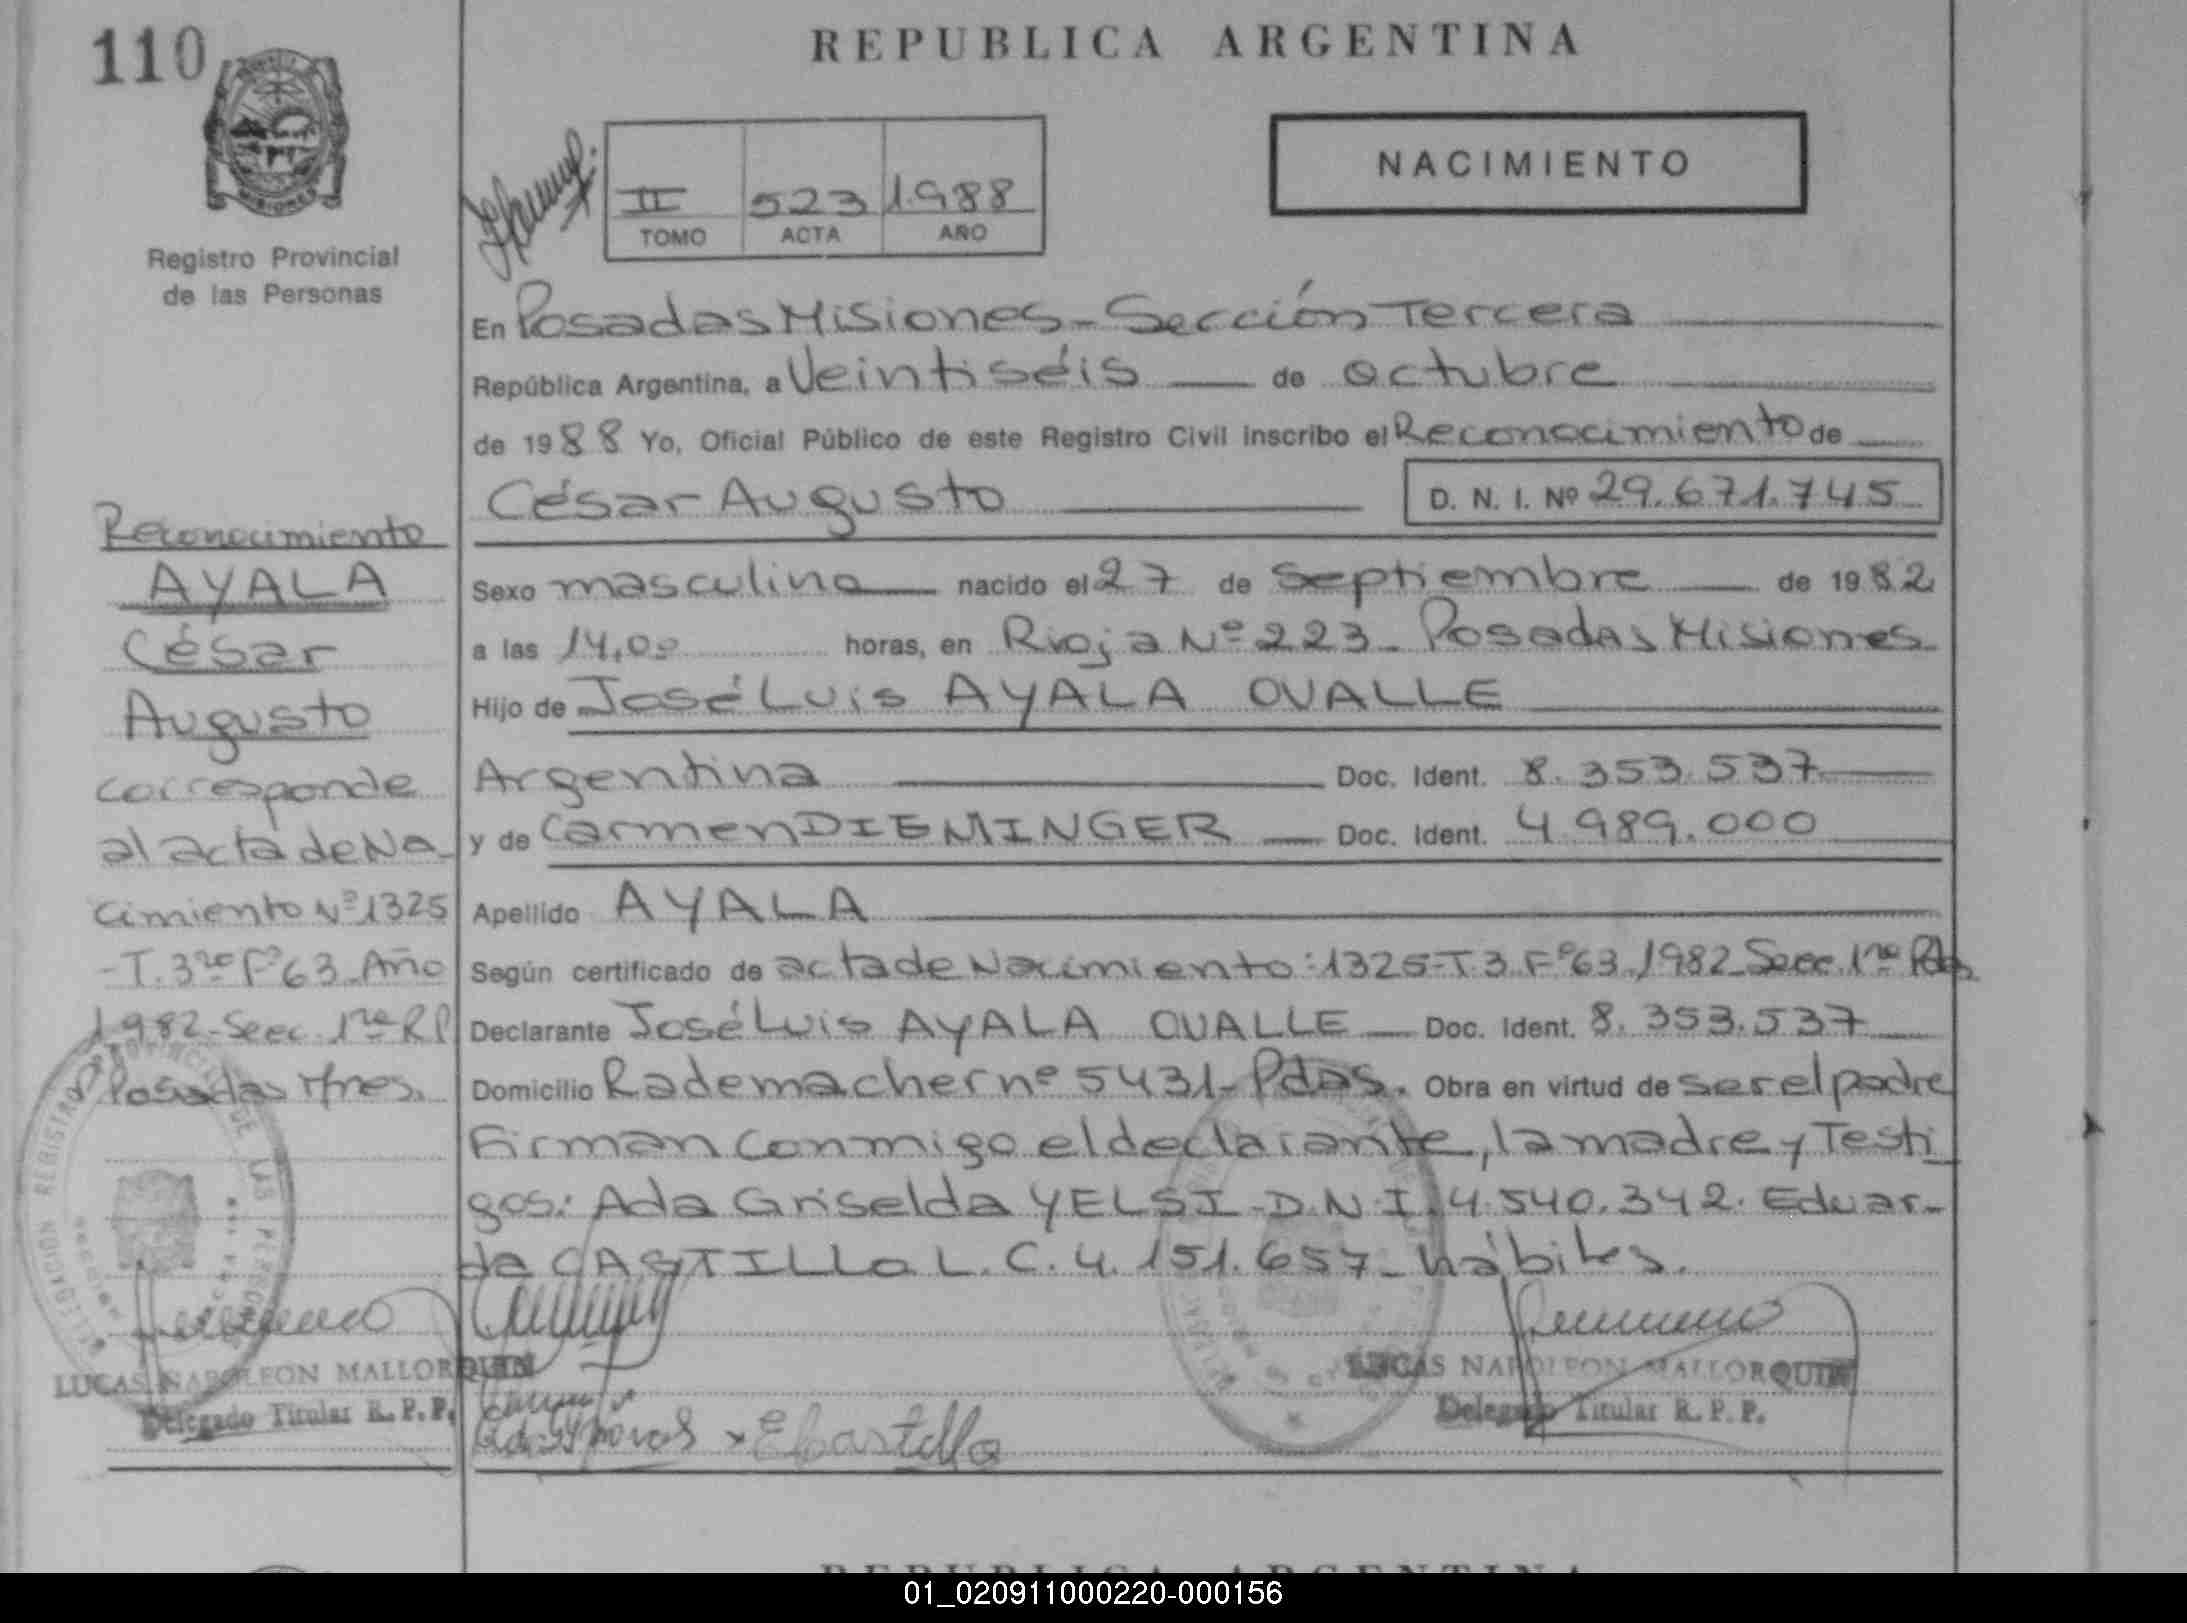 110
REPUBLICA ARGENTINA
NACIMIENTO
MISIONES
Registro Provincial
de las Personas
II 523 1.988
TOMO ACTA AÑO
En Posadas Misiones - Sección Tercera
República Argentina, a Veintiséis de octubre
de 1988 Yo, Oficial Público de este Registro Civil inscribo el Reconocimiento de
César Augusto D. N. I. Nº 29.671.745
Sexo masculino nacido el 27 de septiembre de 1982
a las 14,00 horas, en Rioja Nº 223 - Posadas Misiones
Hijo de José Luis AYALA OVALLE
Argentina Doc. Ident. 8.353.537
y de Carmen DIEMINGER Doc. Ident. 4.989.000
Apellido AYALA
Según certificado de acta de Nacimiento: 1325-T.3.Fº63.1982-Secc.1ra Pdas
Declarante José Luis AYALA OVALLE Doc. Ident. 8.353.537
Domicilio Rademacher nº 5431 - Pdas. Obra en virtud de ser el padre
Firman conmigo el declarante, la madre y Testi
gos: Ada Griselda YELSI - D.N.I. 4.540.342. Eduar-
da CASTILLO L.C. 4.151.657 - hábiles.
Reconocimiento
AYALA
César
Augusto
corresponde
al acta de Na-
cimiento Nº 1325
-T.3ro Fº63-Año
1982-Secc.1ra R P
Posadas Mnes.
LUCAS NAPOLEON MALLORQUIN
Delegado Titular R. P. P.
E Castillo
LUCAS NAPOLEON MALLORQUIN
Delegado Titular R. P. P.
REPUBLICA ARGENTINA
01_020911000220-000156